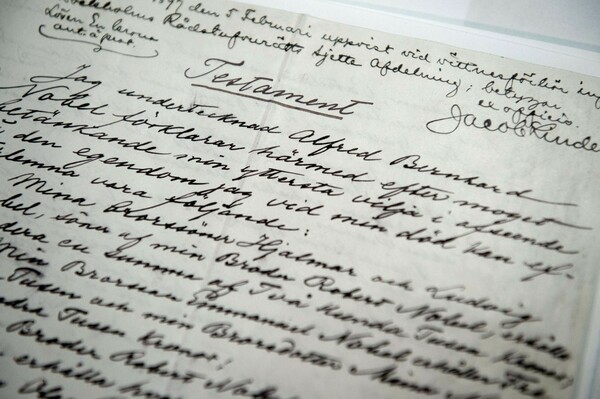 1897 den 5 Februari uppvist vid vittnesförhör inför
Stockholms Rådstufvurätts sjette Afdelning; betygar
Lösen En krona
ex officio.
Jacob Linde
Testament
Jag undertecknad Alfred Bernhard
Nobel förklarar härmed efter moget
betänkande min yttersta vilja i afseende
å den egendom jag vid min död kan ef-
terlemna vara följande:
Mina Brorsöner Hjalmar och Ludvig
Nobel, söner af min Broder Robert Nobel, erhålla
hvardera en Summa af Två Hundra Tusen Kronor;
Min Brorson Emmanuel Nobel erhåller Tre
Tusen och min Brorsdotter Mina
Hundra Tusen Kronor;
Broder Robert Nobel
erhålla